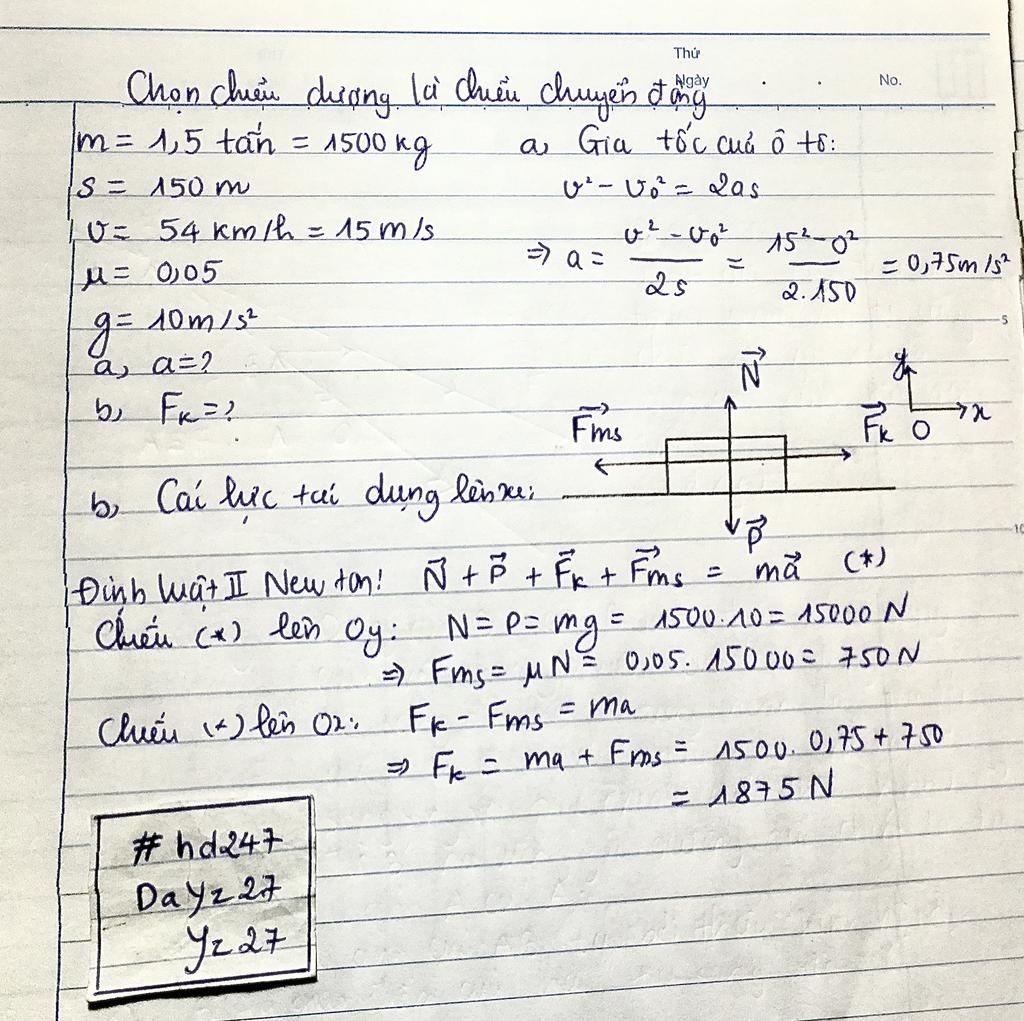 Thứ
Ngày . . No.
Chọn chiều dương là chiều chuyển động
m = 1,5 tấn = 1500 kg
s = 150 m
v = 54 km/h = 15 m/s
μ = 0,05
g = 10m/s²
a, a = ?
b, Fk = ?
a, Gia tốc của ô tô:
v² - v₀² = 2as
⇒ a = (v² - v₀²)/2s = (15² - 0²)/2.150 = 0,75m/s²
5
N y
Fms Fk O x
b, Các lực tác dụng lên xe:
P
10
Định luật II Newton: N + P + Fk + Fms = ma (*)
Chiếu (*) lên Oy: N = P = mg = 1500.10 = 15000 N
⇒ Fms = μN = 0,05. 15000 = 750 N
Chiếu (*) lên Ox: Fk - Fms = ma
⇒ Fk = ma + Fms = 1500. 0,75 + 750
= 1875 N
# hd247
DaYz27
Yz27